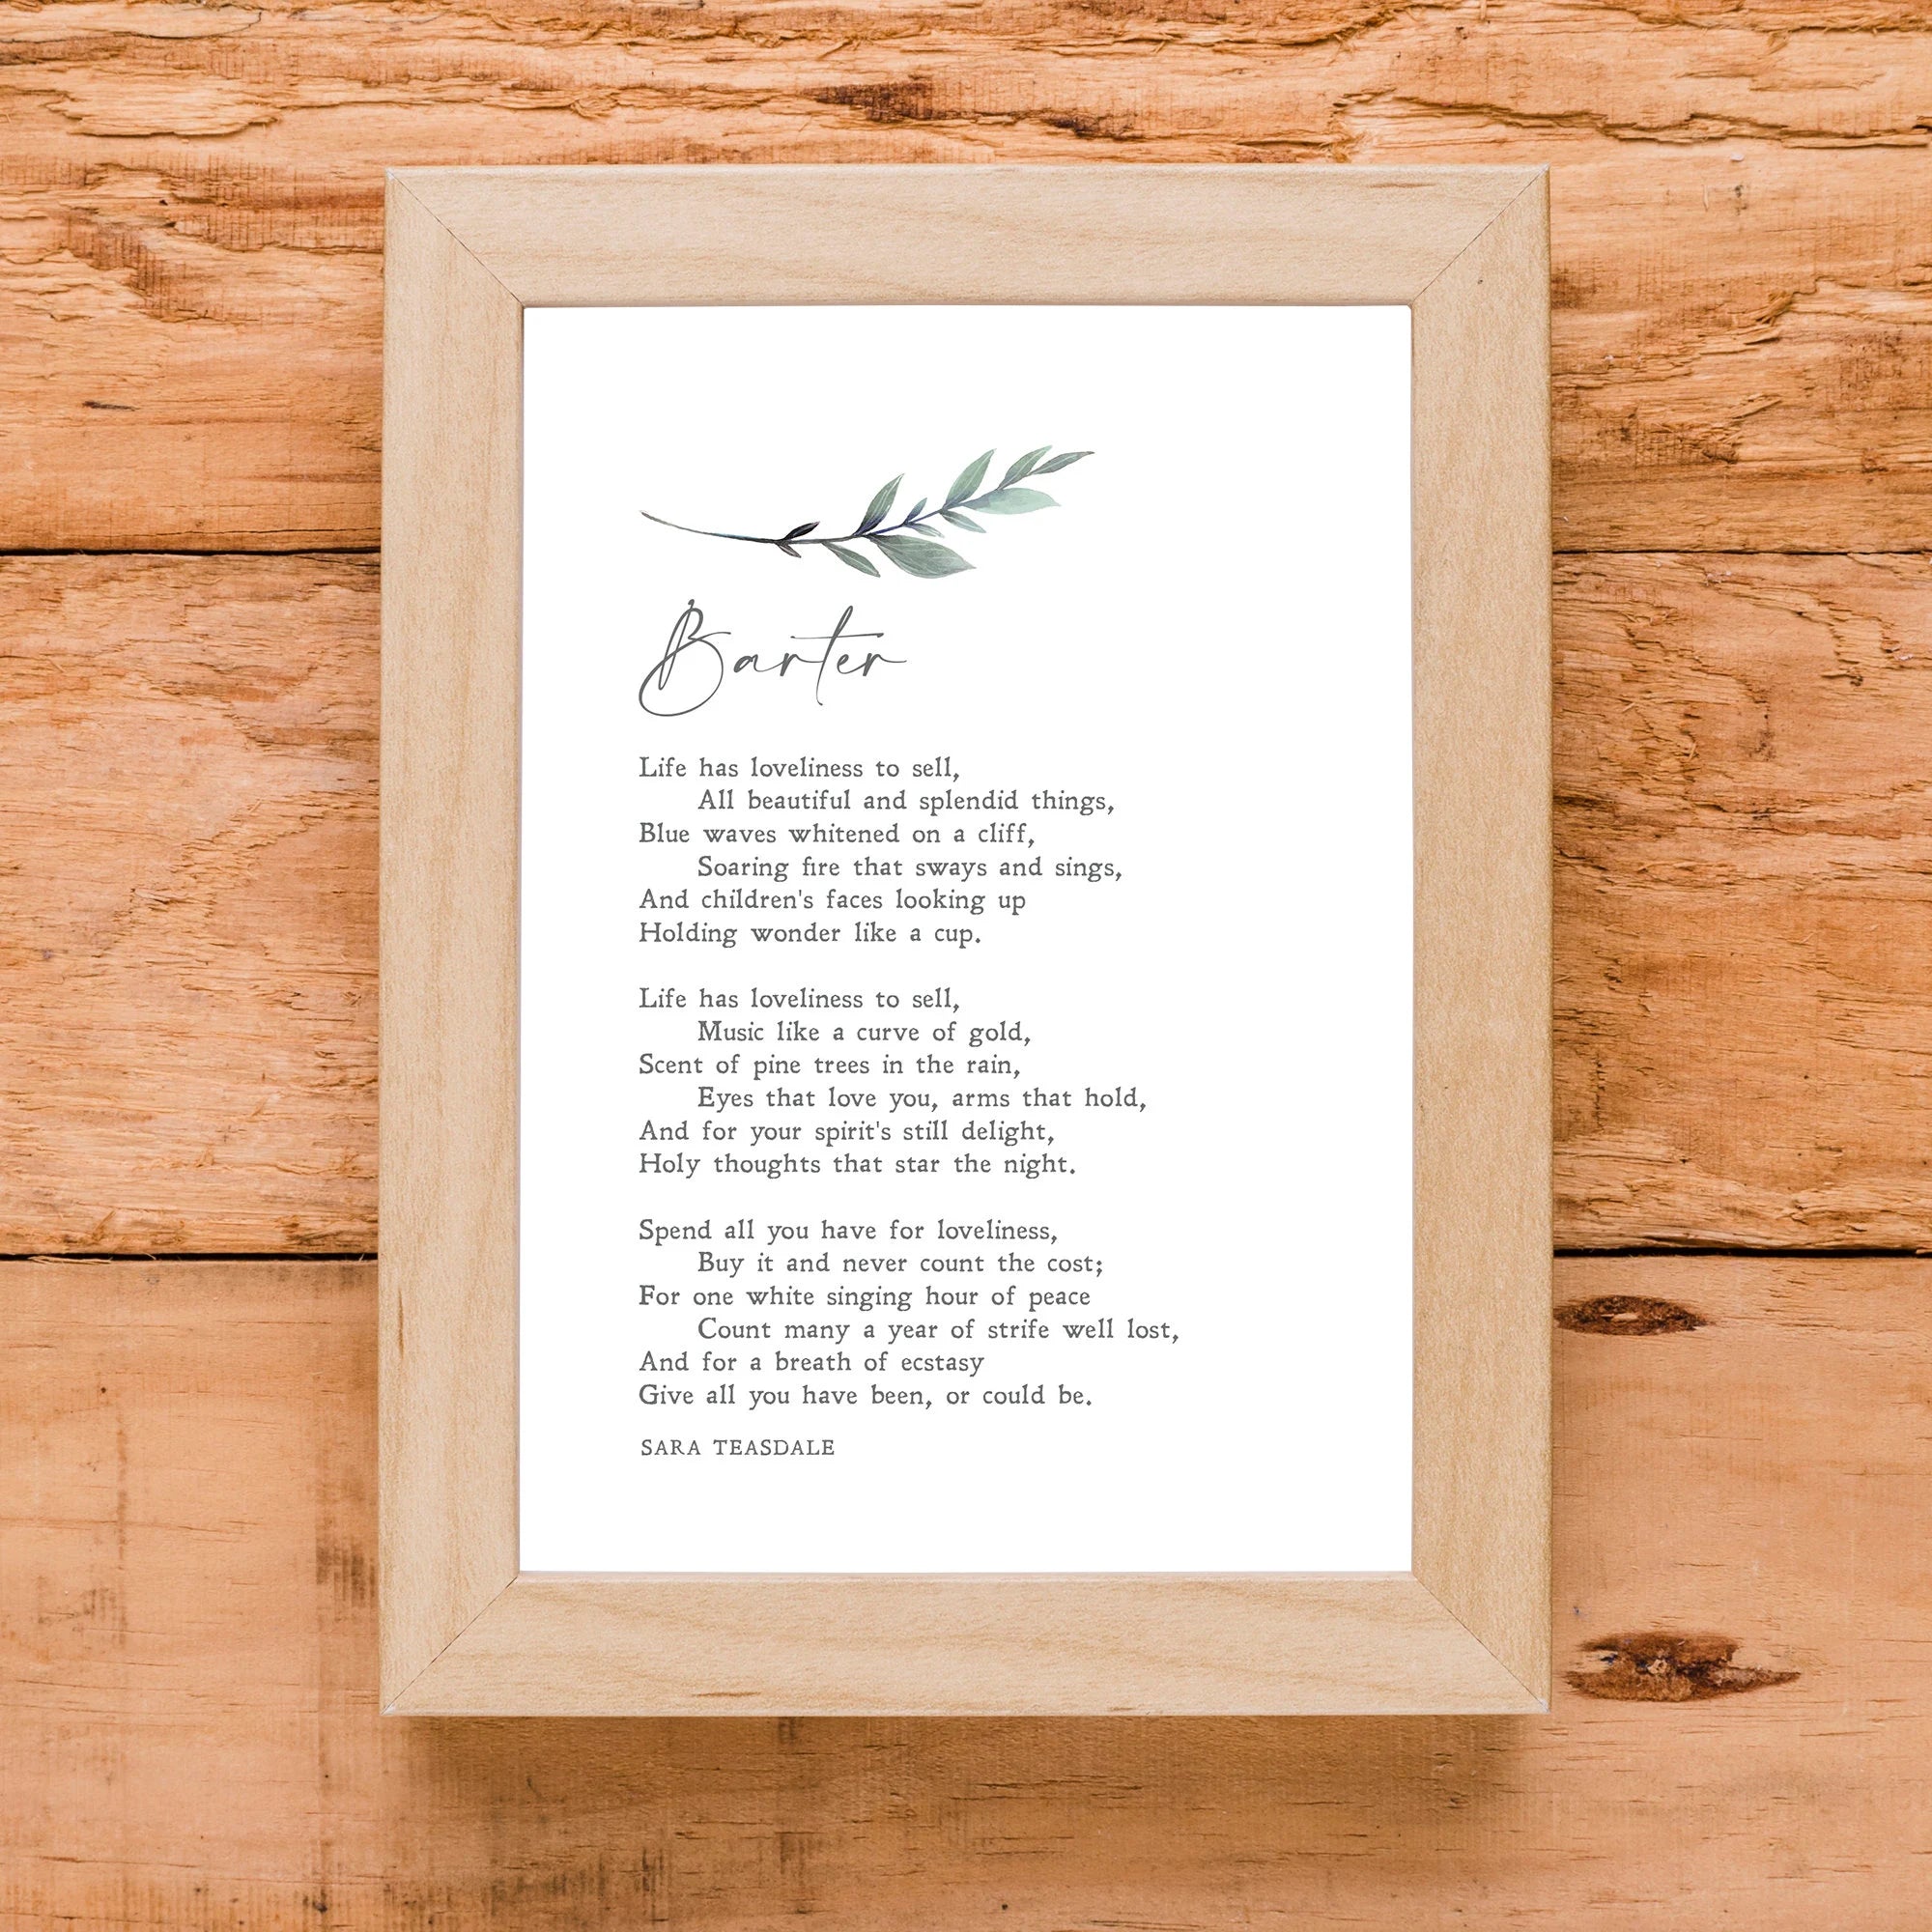 Barter
Life has loveliness to sell,
All beautiful and splendid things,
Blue waves whitened on a cliff,
Soaring fire that sways and sings,
And children's faces looking up
Holding wonder like a cup.
Life has loveliness to sell,
Music like a curve of gold,
Scent of pine trees in the rain,
Eyes that love you, arms that hold,
And for your spirit's still delight,
Holy thoughts that star the night.
Spend all you have for loveliness,
Buy it and never count the cost;
For one white singing hour of peace
Count many a year of strife well lost,
And for a breath of ecstasy
Give all you have been, or could be.
SARA TEASDALE